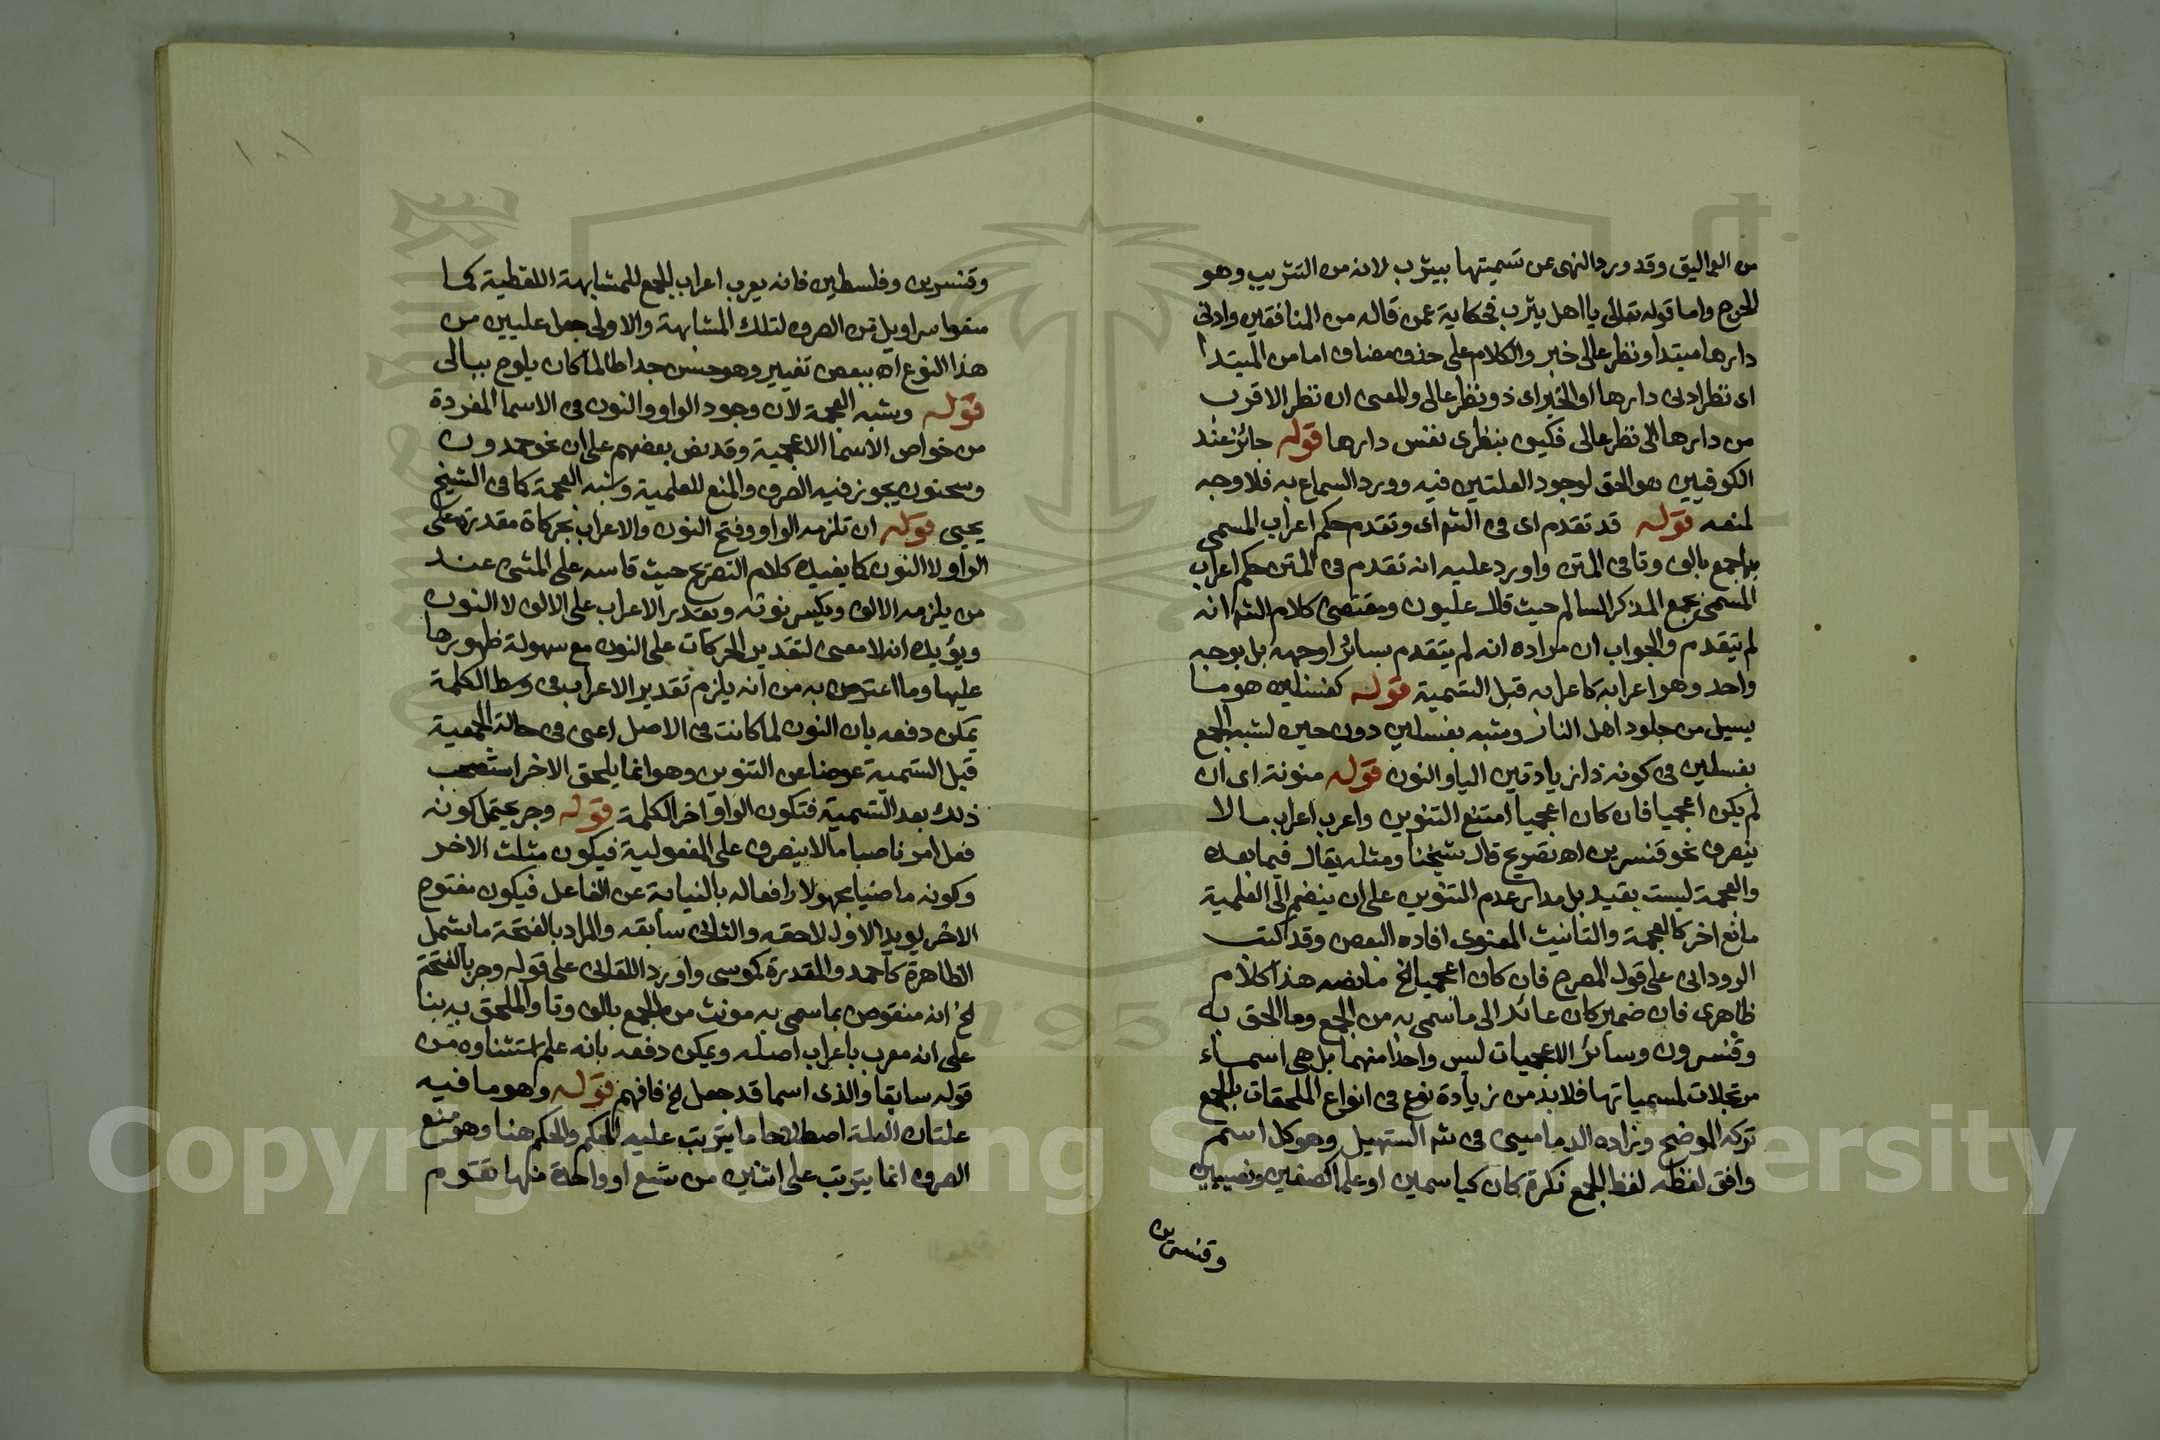 من العماليق وقد ورد النهى عن تسميتها بيثرب لانه من التثريب وهو
الحرج واما قوله تعالى يا اهل يثرب فحكاية عمن قاله من المنافقين وادنى
دارها مبتدا ونظر عالى خبر والكلام على حذف مضاف اما من المبتدا
اى نظر ادنى دارها او الخبر اى ذو نظر عالى والمعنى ان نظر الاقرب
من دارها الى نظر عالى فكيف بنظرى نفس دارها قوله جائز عند
الكوفيين هو الحق لوجود العلتين فيه وورد السماع به فلا وجه
لمنعه قوله قد تقدم اى فى الشرح اى وتقدم حكم اعراب المسمى
بما جمع بالف وتا فى المتن واورد عليه انه تقدم فى المتن حكم اعراب
المسمى بجمع المذكر السالم حيث قال عليون ومقتضى كلام الشرح انه
لم يتقدم والجواب ان مراده انه لم يتقدم بسائر اوجهه بل بوجه
واحد وهو اعرابه كاعرابه قبل التسمية قوله كغسلين هو ما
يسيل من جلود اهل النار وشبه بغسلين دون حين لشبه الجمع
بغسلين فى كونه ذا زيادتين اليا والنون قوله منونة اى ان
لم يكن اعجميا فان كان اعجميا امتنع التنوين واعرب اعراب ما لا
ينصرف نحو قنسرين اه تصريح قال شيخنا ومثله يقال فيما بعده
والعجمة ليست بقيد بل مدار عدم التنوين على ان ينضم الى العلمية
مانع اخر كالعجمة والتانيث المعنوى افاده البعض وقد كتب
الرودانى على قول المصرح فان كان اعجميا الخ ما نصه هذا كلام
ظاهرى فان ضمير كان عائد الى ما سمى به من الجمع وما الحق به
وقنسرون وسائر الاعجميات ليس واحدا منهما بل هى اسماء
مرتجلات لمسمياتها فلا بد من زيادة نوع فى انواع الملحقات بالجمع
تركه الموضح وزاده الدمامينى فى شرح التسهيل وهو كل اسم
وافق لفظه لفظ الجمع نكرة كان كياسمين او علما كصفين ونصيبين
وقنسرين
وقنسرين وفلسطين فانه يعرب اعراب الجمع للمشابهة اللفظية كما
منعوا سراويل من الصرف لتلك المشابهة والاولى جعل عليين من
هذا النوع اه ببعض تغيير وهو حسن جدا طالما كان يلوح ببالى
قوله وشبه العجمة لان وجود الواو والنون فى الاسما المفردة
من خواص الاسما الاعجمية وقد نص بعضهم على ان نحو حمدون
وسحنون يجوز فيه الصرف والمنع للعلمية وشبه العجمة كما فى الشيخ
يحيى قوله ان تلزمه الواو وفتح النون والاعراب بحركاة مقدرة على
الواو لا النون كما يفيده كلام التصريح حيث قاسه على المثنى عند
من يلزمه الالف ويكسر نونه ويقدر الاعراب على الالف لا النون
ويؤيده انه لا معنى لتقدير الحركات على النون مع سهولة ظهورها
عليها وما اعترض به من انه يلزم تقدير الاعراب فى وسط الكلمة
يمكن دفعه بان النون لما كانت فى الاصل اعنى فى حالة الجمعية
قبل التسمية عوضا عن التنوين وهو انما يلحق الاخر استصحب
ذلك بعد التسمية فتكون الواو اخر الكلمة قوله وجر يحتمل كونه
فعل امر ناصبا ما لا ينصرف على المفعولية فيكون مثلث الاخر
وكونه ماضيا مجهولا رافعا له بالنيابة عن الفاعل فيكون مفتوح
الاخر يويد الاول لاحقه والثانى سابقه والمراد بالفتحة ما يشمل
الظاهرة كاحمد والمقدرة كموسى واورد اللقانى على قوله وجر بالفتحة
الخ انه منقوض بما سمى به مونث من الجمع بالف وتا والملحق به بنا
على انه معرب باعراب اصله ويمكن دفعه بانه علم استثناوه من
قوله سابقا والذى اسما قد جعل الخ فافهم قوله وهو ما فيه
علتان العلة اصطلاحا ما يترتب عليه الحكم والحكم هنا وهو منع
الصرف انما يترتب على اثنين من تسع او واحدة منها تقوم